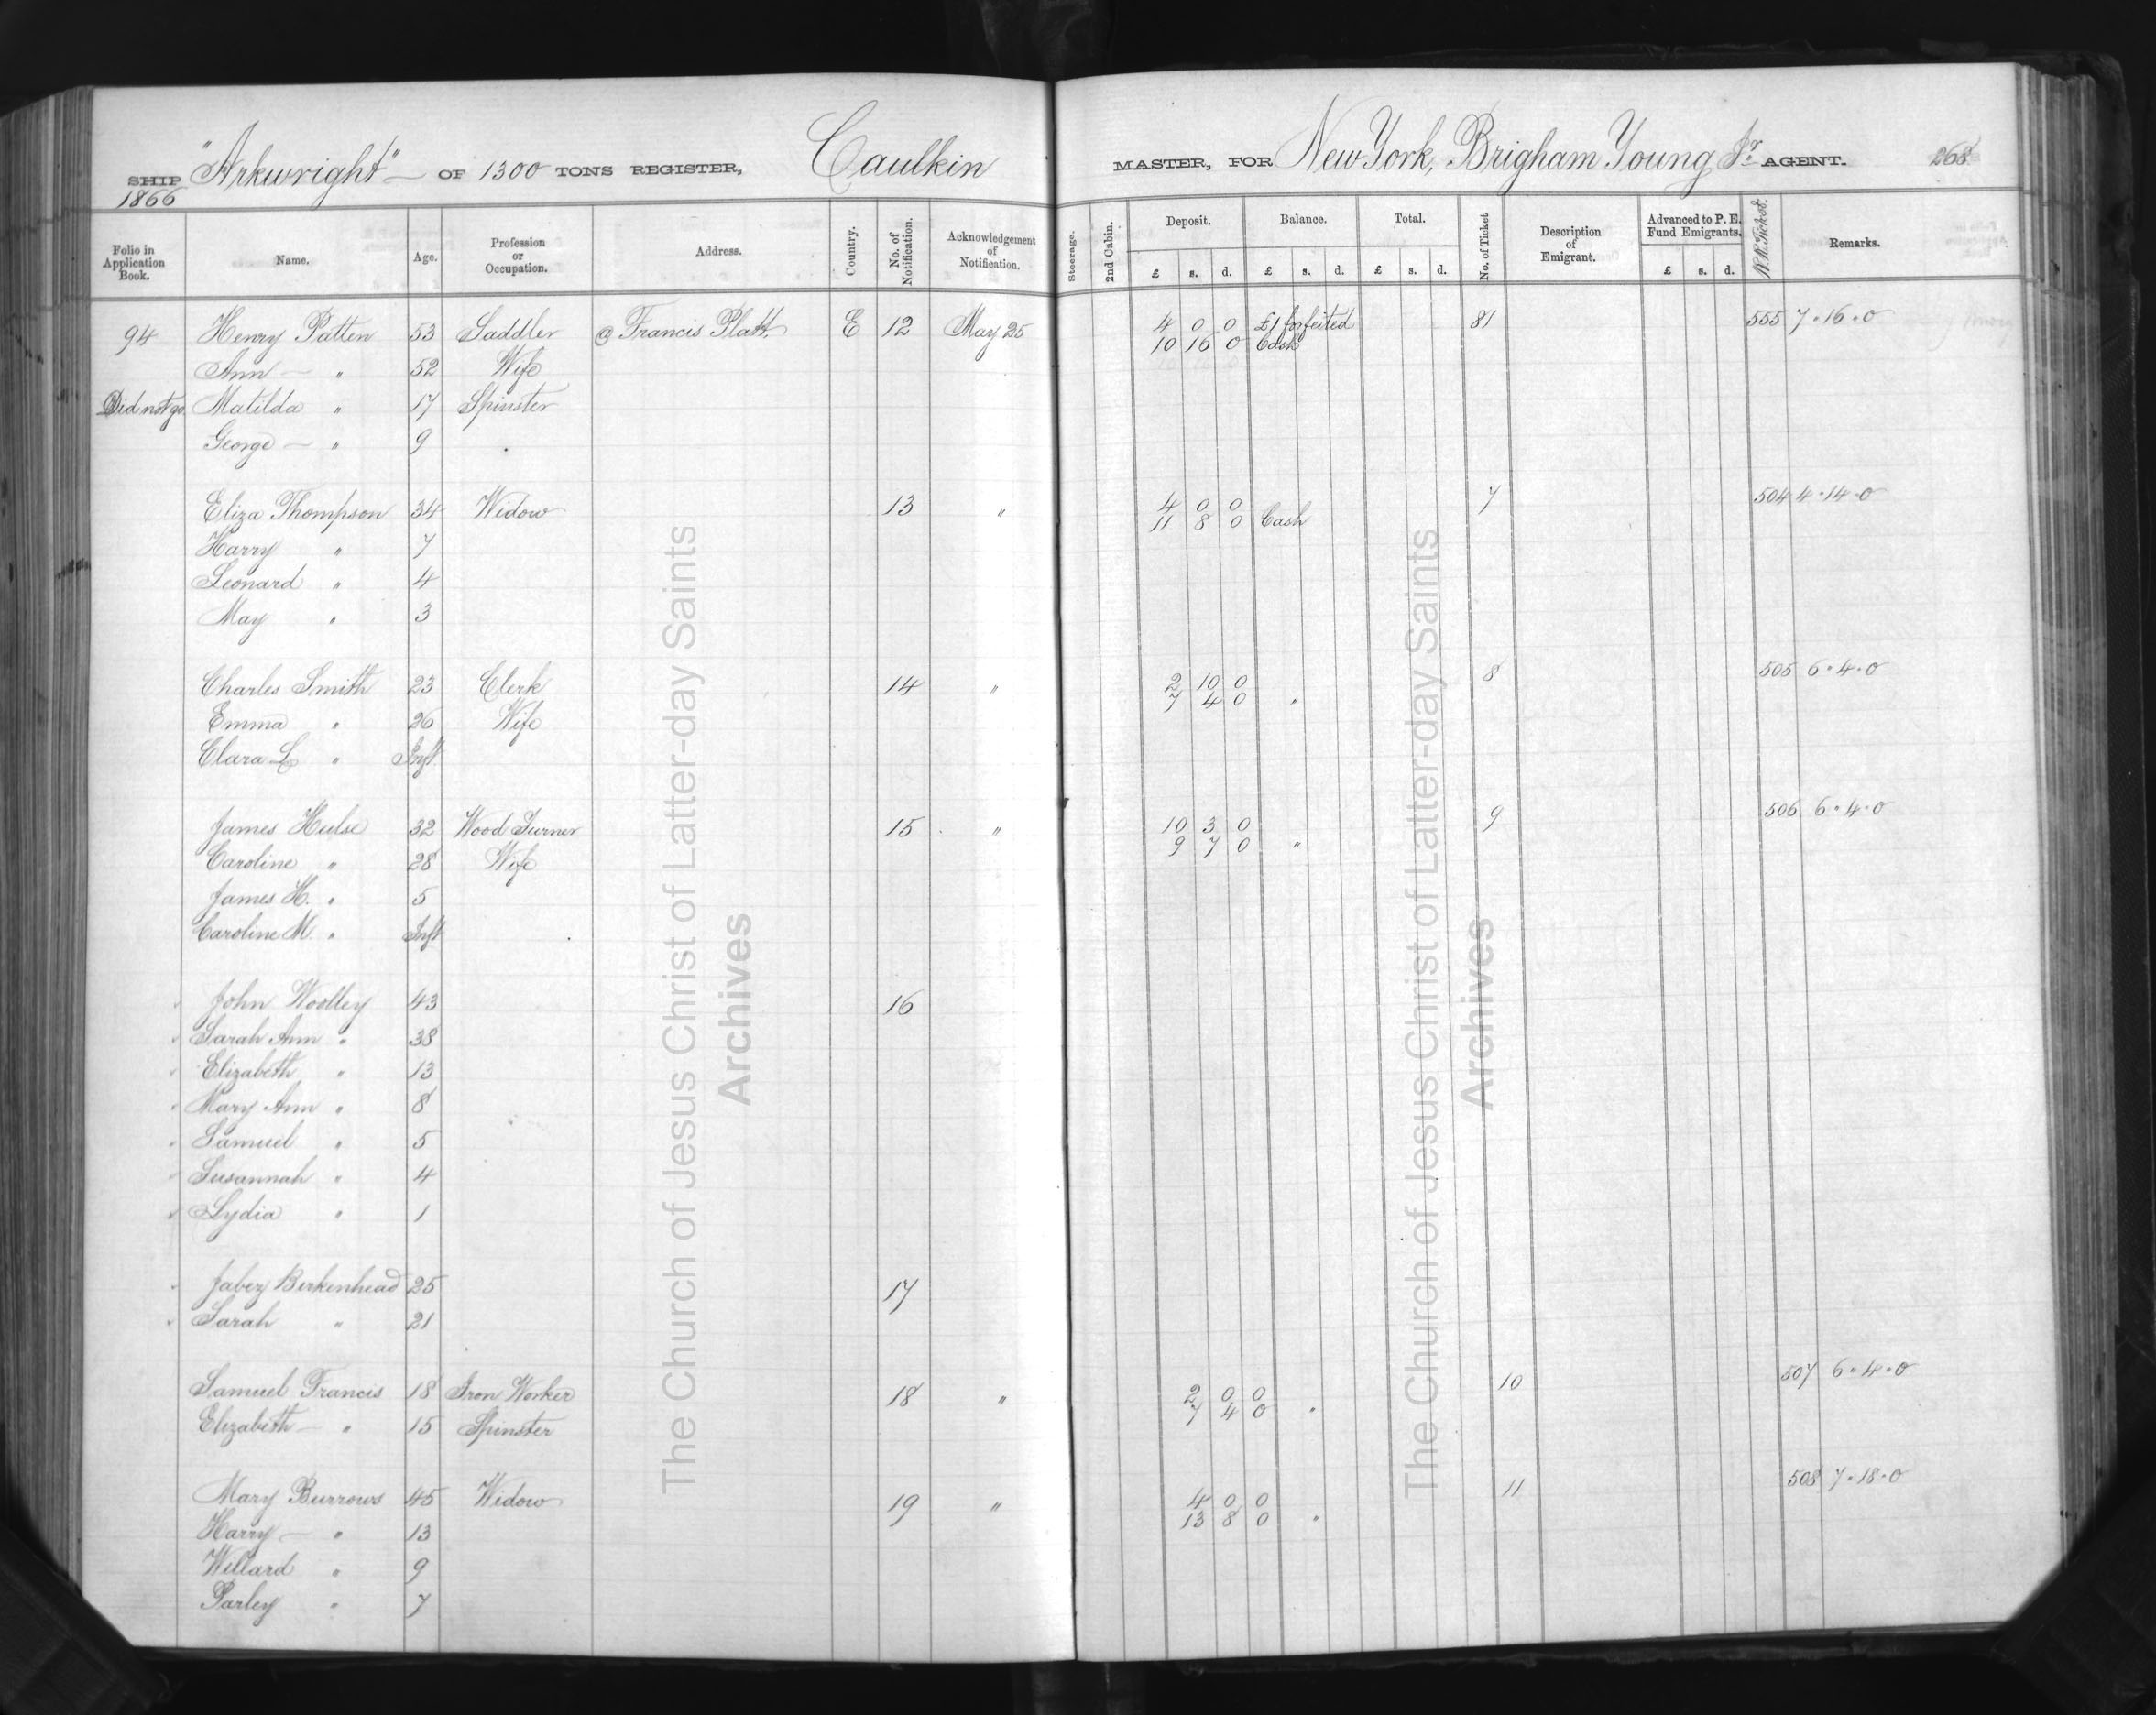 SHIP "Arkwright" — OF 1300 TONS REGISTER, Caulkin MASTER, FOR New York, Brigham Young Jr. AGENT. 268
1866
Folio in Application Book. Name. Age. Profession or Occupation. Address. Country. No. of Notification. Acknowledgement of Notification. Steerage. 2nd Cabin. Deposit. Balance. Total. No. of Ticket Description of Emigrant. Advanced to P. E. Fund Emigrants. R.R. Ticket. Remarks.
£ s. d. £ s. d. £ s. d. £ s. d.
94 Henry Patten 53 Saddler @ Francis Platt, E 12 May 25 4 0 0 £1 forfeited 81 555 7 " 16 " 0
10 16 0 Cash
Ann — " 52 Wife
Did not go Matilda " 17 Spinster
George — " 9
Eliza Thompson 34 Widow 13 " 4 0 0 7 504 4 " 14 " 0
11 8 0 Cash
Harry " 7
Leonard " 4
May " 3
Charles Smith 23 Clerk 14 " 2 10 0 8 505 6 " 4 " 0
7 4 0 "
Emma " 26 Wife
Clara L " Inft.
James Hulse 32 Wood Turner 15 " 10 3 0 9 506 6 " 4 " 0
9 7 0 "
Caroline " 28 Wife
James H. " 5
Caroline M. " Inft
John Woolley 43 16
Sarah Ann " 38
Elizabeth " 13
Mary Ann " 8
Samuel " 5
Susannah " 4
Lydia " 1
Jabez Birkenhead 25 17
Sarah " 21
Samuel Francis 18 Iron Worker 18 " 2 0 0 10 507 6 " 4 " 0
7 4 0 "
Elizabeth — " 15 Spinster
Mary Burrows 45 Widow 19 " 4 0 0 11 508 7 " 18 " 0
13 8 0 "
Harry — " 13
Willard " 9
Parley " 7
The Church of Jesus Christ of Latter-day Saints
Archives
The Church of Jesus Christ of Latter-day Saints
Archives